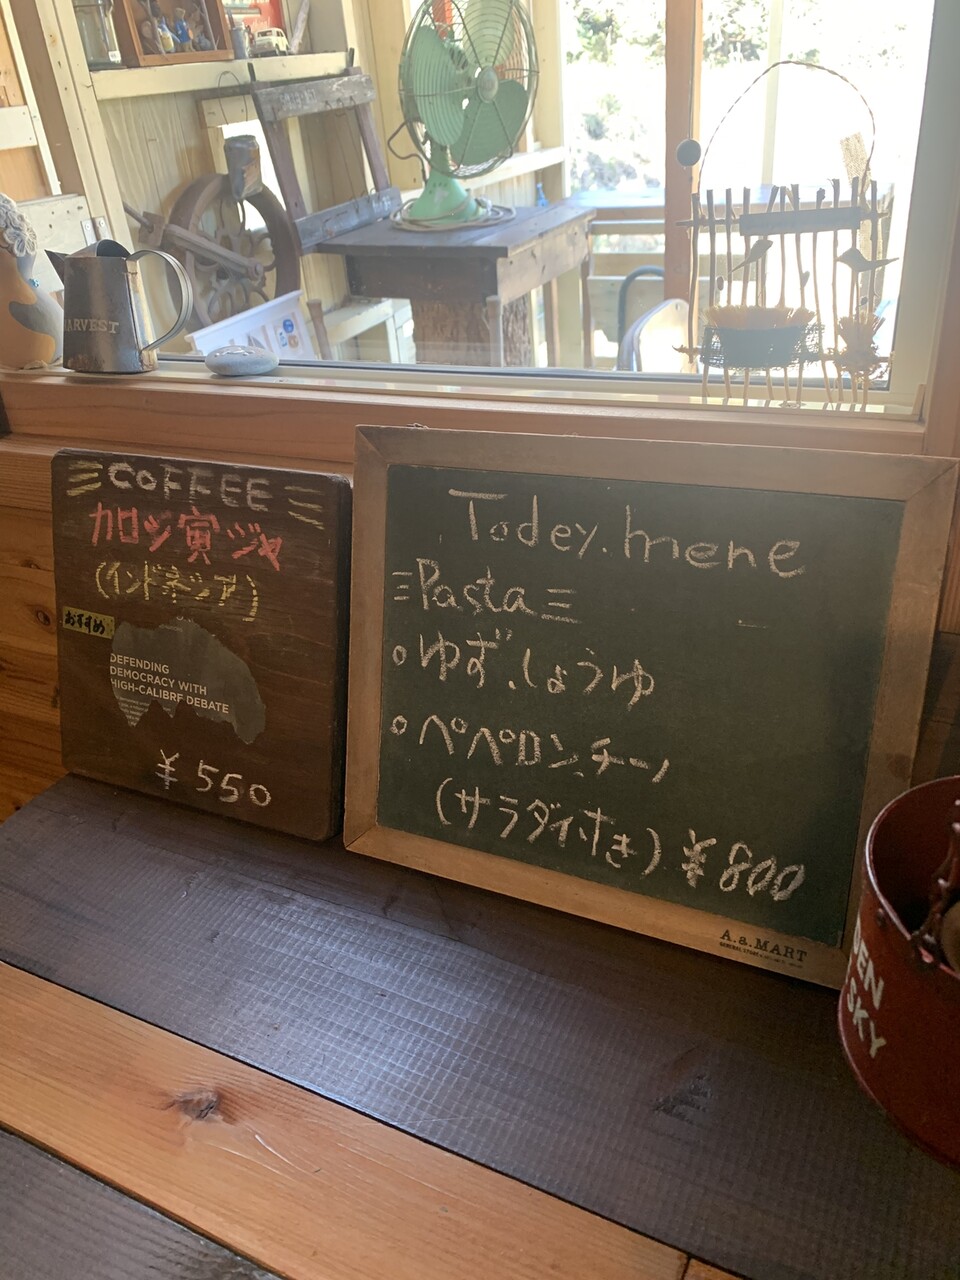 HARVEST
COFFEE
カロシ寅ジャ
(インドネシア)
おすすめ
DEFENDING
DEMOCRACY WITH
HIGH-CALIBRE DEBATE
¥550
Todey.mene
Pasta
ゆず.しょうゆ
ペペロンチーノ
(サラダ付き) ¥800
A.a.MART